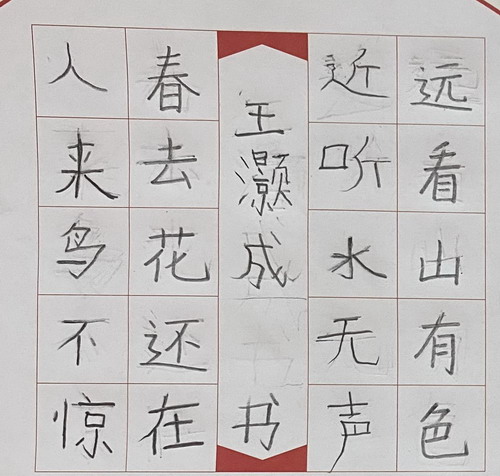 远看山有色
近听水无声
王灏成 书
春去花还在
人来鸟不惊